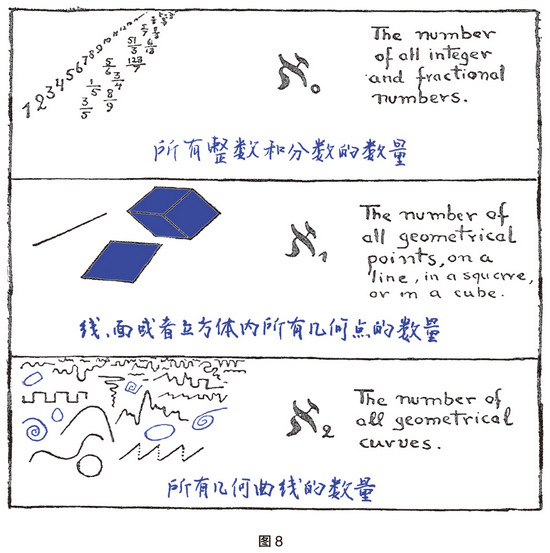 1 2 3 4 5 6 7 8 9
1/5 3/5 5/6 3/4 8/9
51/5 6/13 123/7
ℵ₀
The number
of all integer
and fractional
numbers.
所有整数和分数的数量
ℵ₁
The number of
all geometrical
points, on a
line, in a square,
or in a cube.
线、面或者立方体内所有几何点的数量
ℵ₂
The number of
all geometrical
curves.
所有几何曲线的数量
图8